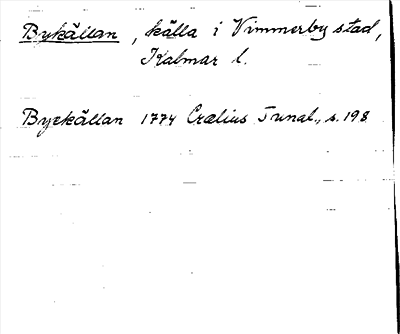 Bykällan, källa i Vimmerby stad,
Kalmar l.
Byekällan 1774 Crælius Tunal., s. 198